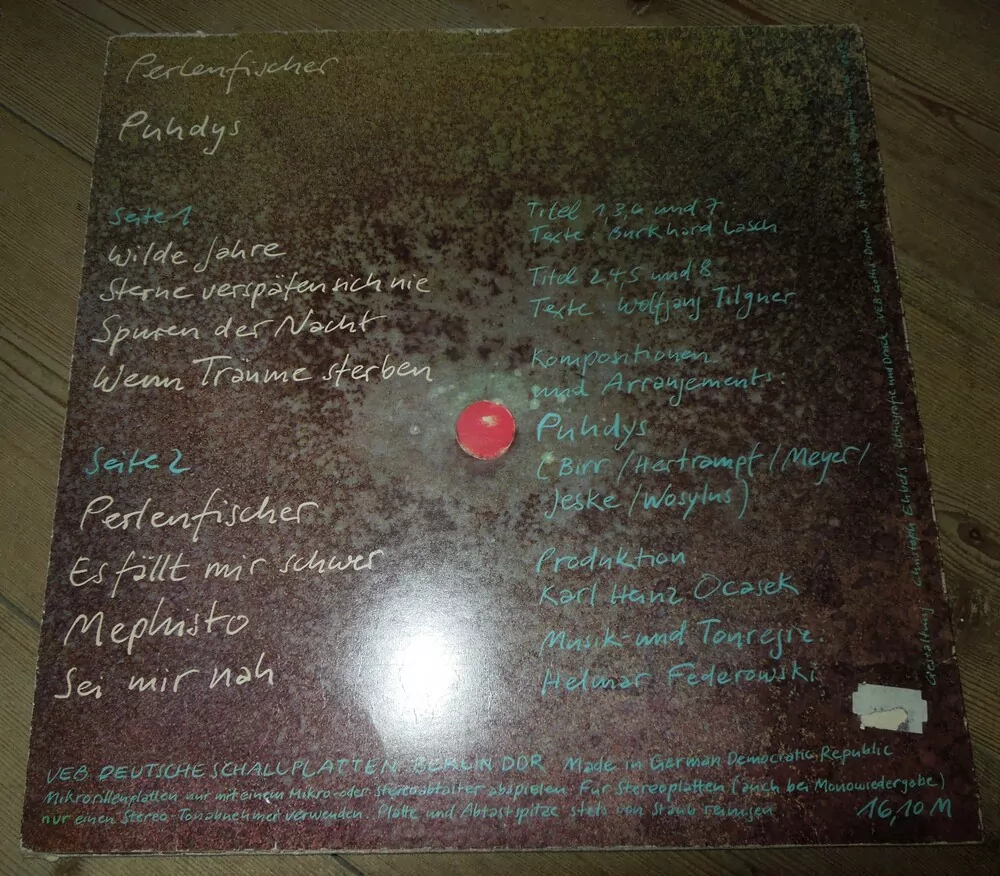 Perlenfischer
Puhdys
Seite 1
Wilde Jahre
Sterne verspäten sich nie
Spuren der Nacht
Wenn Träume sterben
Seite 2
Perlenfischer
Es fällt mir schwer
Mephisto
Sei mir nah
Titel 1, 3, 6 und 7
Texte: Burkhard Lasch
Titel 2, 4, 5 und 8
Texte: Wolfgang Tilgner
Kompositionen
und Arrangements:
Puhdys
(Birr / Hertrampf / Meyer /
Jeske / Wosylus)
Produktion
Karl Heinz Ocasek
Musik- und Tonregie:
Helmar Federowski
VEB DEUTSCHE SCHALLPLATTEN BERLIN DDR Made in German Democratic Republic
Mikrorillenplatten nur mit einem Mikro- oder Stereoabtaster abspielen. Für Stereoplatten (auch bei Monowiedergabe)
nur einen Stereo Tonabnehmer verwenden. Platte und Abtastspitze stets von Staub reinigen
16,10 M
Gestaltung Christoph Ehbets Lithografie und Druck VEB Gotha-Druck